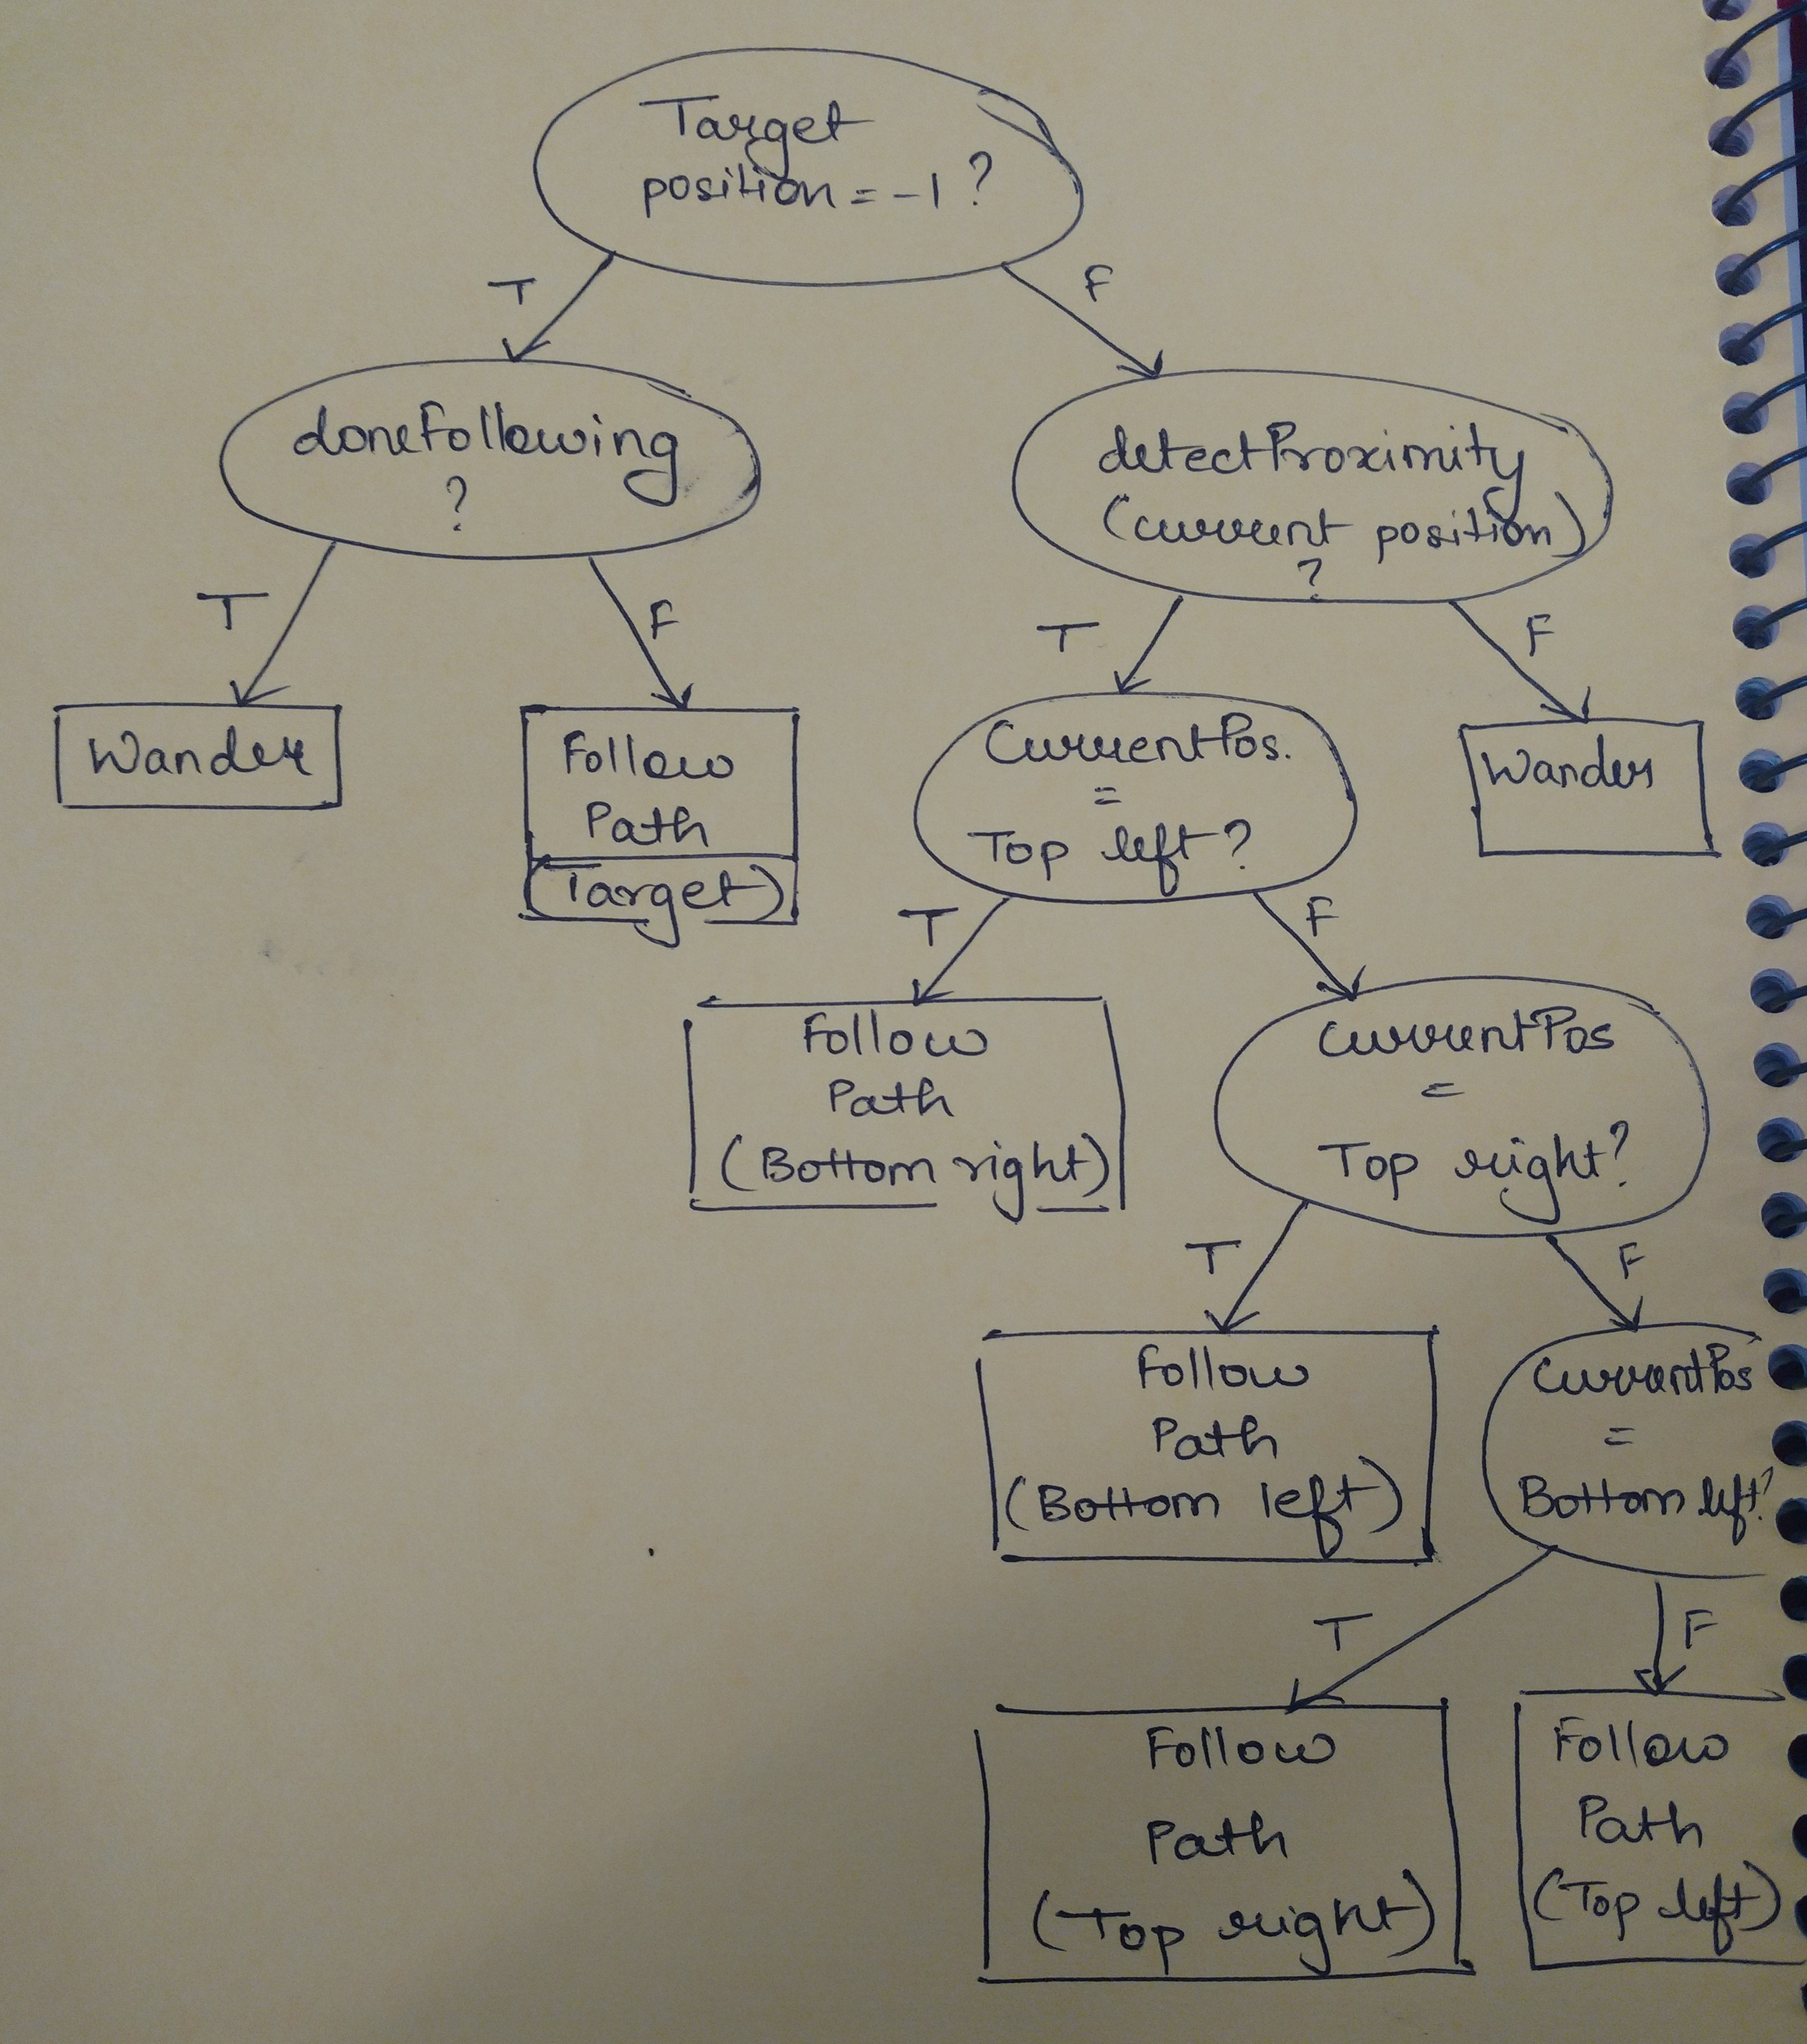 Target
position = -1 ?
T
F
doneFollowing
?
detectProximity
(current position)
?
T
F
T
F
Wander
Follow
Path
(Target)
CurrentPos.
=
Top left?
Wander
T
F
Follow
Path
(Bottom right)
CurrentPos
=
Top right?
T
F
Follow
Path
(Bottom left)
CurrentPos
=
Bottom left?
T
F
Follow
Path
(Top right)
Follow
Path
(Top left)